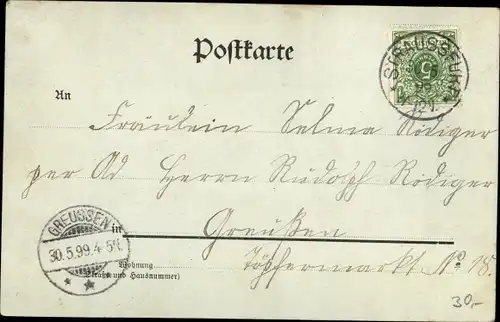 Postkarte
STRAUSSFURT
5
An Fräulein Selma Rödiger
per Ad Herrn Rudolph Rödiger
in Greußen
GREUSSEN
30.5.99.4-5N.
Wohnung Töpfermarkt No 18.
(Straße und Hausnummer)
30,-